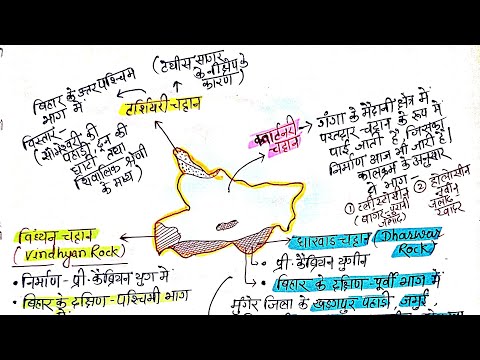 (टेथीस सागर
के नीक्षेप के
कारण)
बिहार के उत्तर पश्चिम
भाग में
टर्शियरी चट्टान
विस्तार-
(सोमेश्वरी की
पहाड़ी, दून की
घाटी तथा
शिवालिक श्रेणी
के मध्य)
क्वार्टनरी
चट्टान
गंगा के मैदानी क्षेत्र में
परतदार चट्टान के रूप में
पाई जाता है जिसका
निर्माण आज भी जारी है।
कालक्रम के अनुसार
दो भाग-
① प्लीस्टोसीन
(बांगर-पुरानी
जमाव)
② होलोसीन
नवीन
जलोढ़
खादर
विंध्यन चट्टान
(Vindhyan Rock)
• निर्माण - प्री-कैंब्रियन युग में
• बिहार के दक्षिण-पश्चिमी भाग
धारवाड़ चट्टान (Dharwar
Rock)
• प्री-कैंब्रियन युगीन
• बिहार के दक्षिण-पूर्वी भाग में
मुंगेर जिला के खड़गपुर पहाड़ी, जमुई,